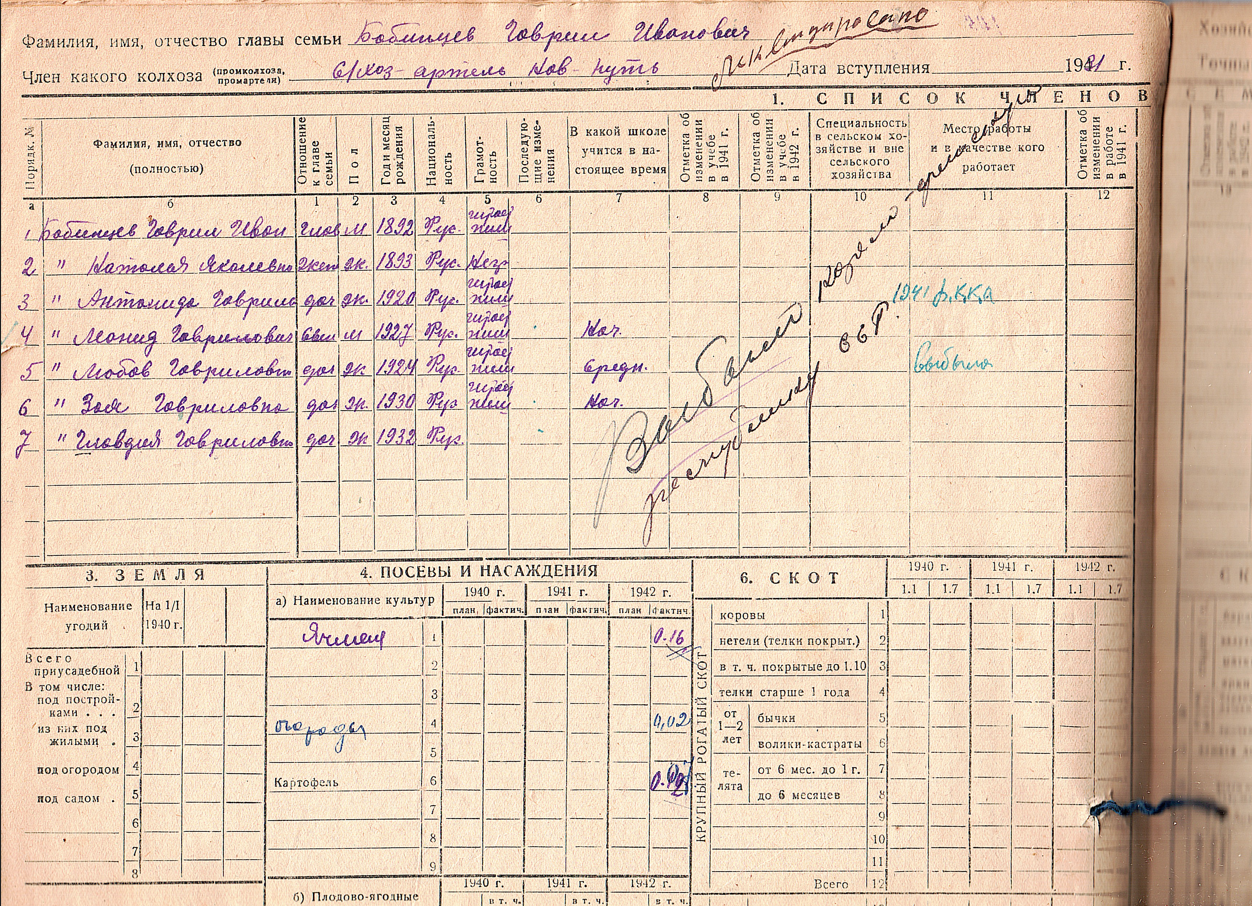 Фамилия, имя, отчество главы семьи Бобинцев Гаврил Иванович
Ликвидировано
Член какого колхоза (промколхоза, промартели) с/хоз-артель Нов-путь Дата вступления 1931 г.
1. СПИСОК ЧЛЕНОВ
Порядк. № Фамилия, имя, отчество (полностью) Отношение к главе семьи Пол Год и месяц рождения Националь-ность Грамот-ность Последую-щие изме-нения В какой школе учится в на-стоящее время Отметка об изменении в учебе в 1941 г. Отметка об изменении в учебе в 1942 г. Специальность в сельском хо-зяйстве и вне сельского хозяйства Место работы и в качестве кого работает Отметка об изменении в работе в 1941 г.
а б 1 2 3 4 5 6 7 8 9 10 11 12
1 Бобинцев Гаврил Иван глав м 1892 Рус.
2 " Наталья Яковлевна жен ж. 1893 Рус. Негр
3 " Антонида Гаврило доч ж. 1920 Рус. 1941 Р.К.К.А
4 " Леонид Гаврилович сын м 1927 Рус. Нач.
5 " Любов Гавриловн доч ж 1924 Рус Средн. выбыла
6 " Зоя Гавриловна доч ж. 1930 Рус Нач.
7 " Клавдия Гавриловн доч ж 1932 Рус.
республику ССР.
3. ЗЕМЛЯ
Наименование угодий На 1/I 1940 г.
Всего приусадебной 1
В том числе:
под построй-ками . . . 2
из них под жилыми . 3
под огородом 4
под садом . 5
6
7
8
4. ПОСЕВЫ И НАСАЖДЕНИЯ
а) Наименование культур 1940 г. 1941 г. 1942 г.
план. фактич. план фактич. план фактич.
Ячмень 1 0.16
2
3
огороды 4 0,02
5
Картофель 6
7
8
9
б) Плодово-ягодные 1940 г. 1941 г. 1942 г.
в т. ч. в т. ч. в т. ч.
6. СКОТ 1940 г. 1941 г. 1942 г.
1.1 1.7 1.1 1.7 1.1 1.7
КРУПНЫЙ РОГАТЫЙ СКОТ
коровы 1
нетели (телки покрыт.) 2
в т. ч. покрытые до 1.10 3
телки старше 1 года 4
от 1—2 лет бычки 5
волики-кастраты 6
те-лята от 6 мес. до 1 г. 7
до 6 месяцев 8
9
10
11
Всего 12